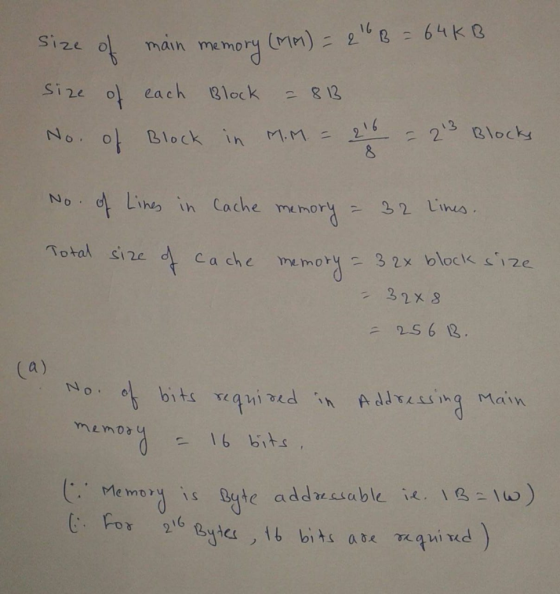 Size of main memory (MM) = 2^16 B = 64KB
Size of each Block = 8B
No. of Block in M.M = 2^16 / 8 = 2^13 Blocks
No. of Lines in Cache memory = 32 Lines.
Total size of Cache memory = 32 x block size
= 32 x 8
= 256 B.
(a)
No. of bits required in Addressing Main
memory = 16 bits.
(∵ Memory is Byte addressable ie. 1B = 1W)
(∵ For 2^16 Bytes, 16 bits are required)